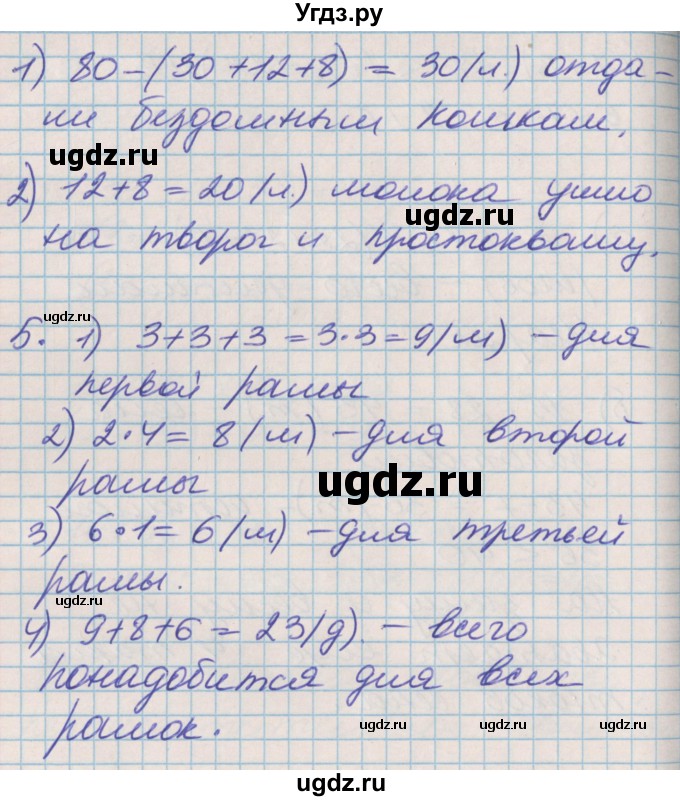 Угдз.ру
1) 80-(30+12+8) = 30(л.) отда-
ли бездомным кошкам.
ugdz.ru
2) 12+8=20(л.) молока ушло
ugdz.ru
на творог и простоквашу.
ugdz.ru
5. 1) 3+3+3=3·3=9(м) -для
первой рамы
2) 2·4= 8(м) -для второй
рамы
ugdz.ru
3) 6·1=6(м) -для третьей
рамы.
ugdz.ru
4) 9+8+6=23(д). - всего
понадобится для всех
рамок.
ugdz.ru ugdz.ru ugdz.ru
ugdz.ru